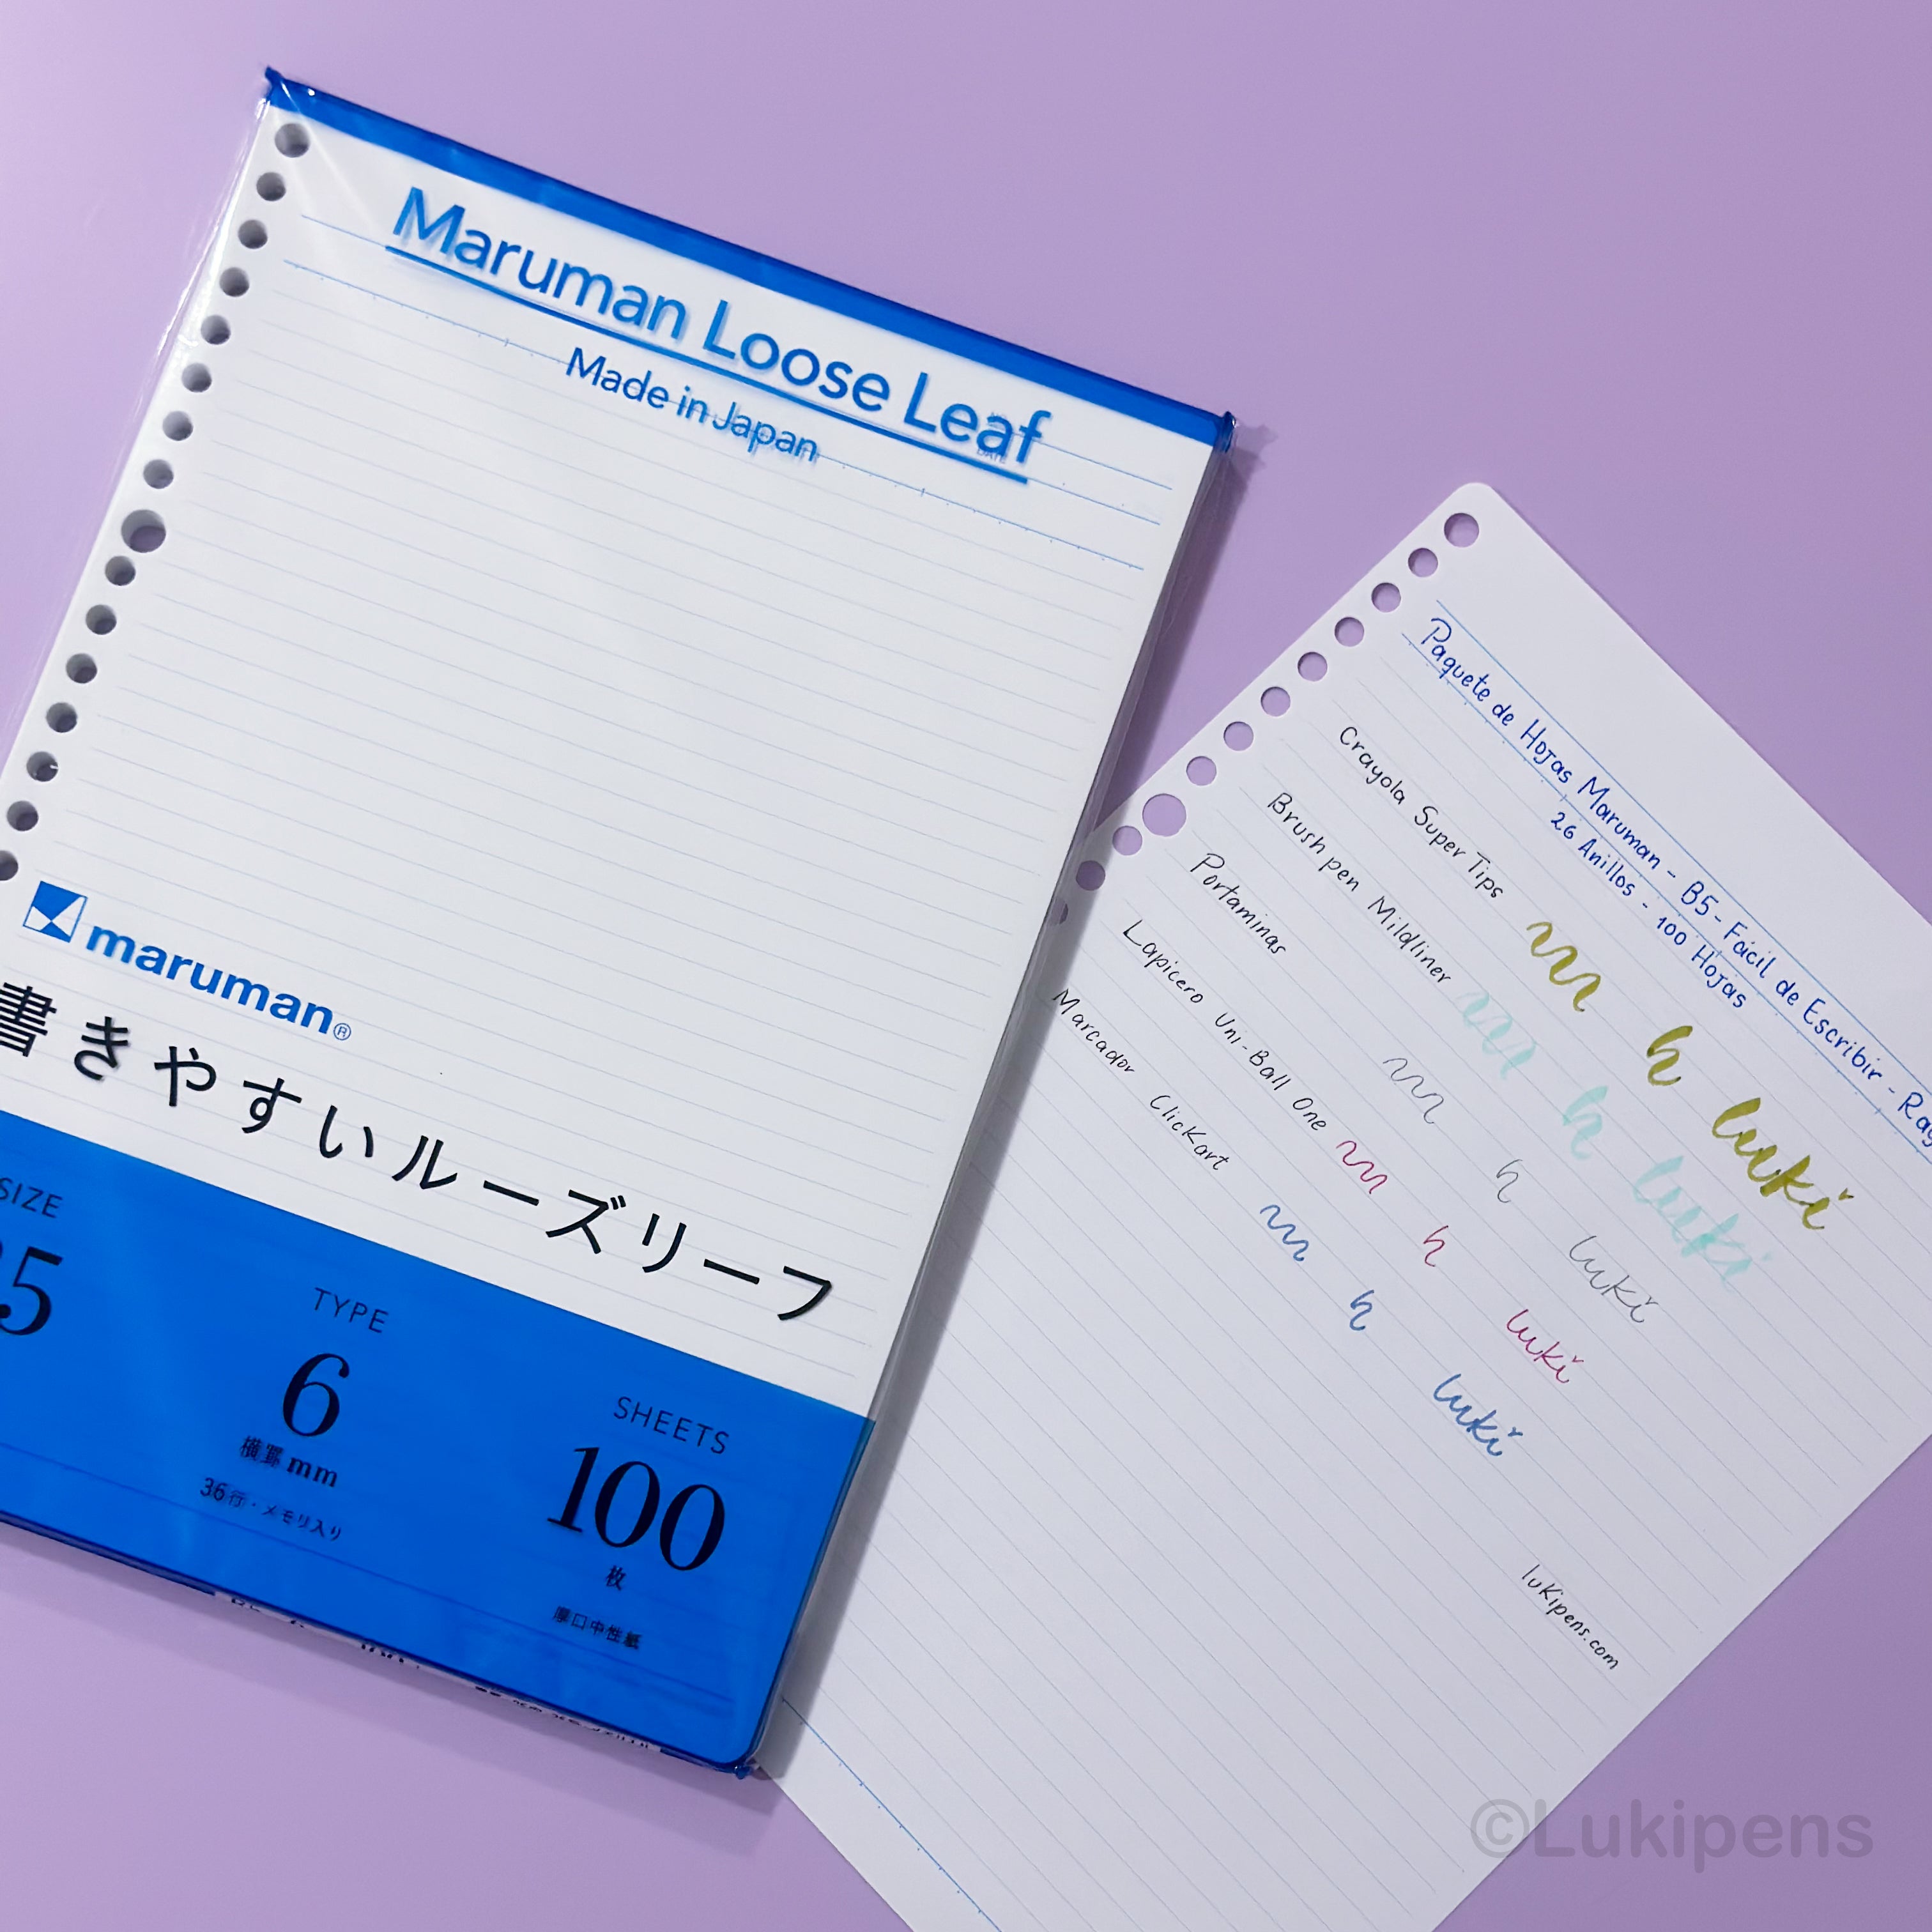 Maruman Loose Leaf
Made in Japan
maruman®
書きやすいルーズリーフ
SIZE
5
TYPE
6
横罫 mm
36行・メモリ入り
SHEETS
100
枚
厚口中性紙
Paquete de Hojas Maruman - B5 - Fácil de Escribir -
26 Anillos - 100 Hojas
Crayola Super Tips h luki
Brush pen Mildliner h luki
Portaminas h luki
Lapicero Uni-Ball One h luki
Marcador ClicKart h luki
luKipens.com
©Lukipens